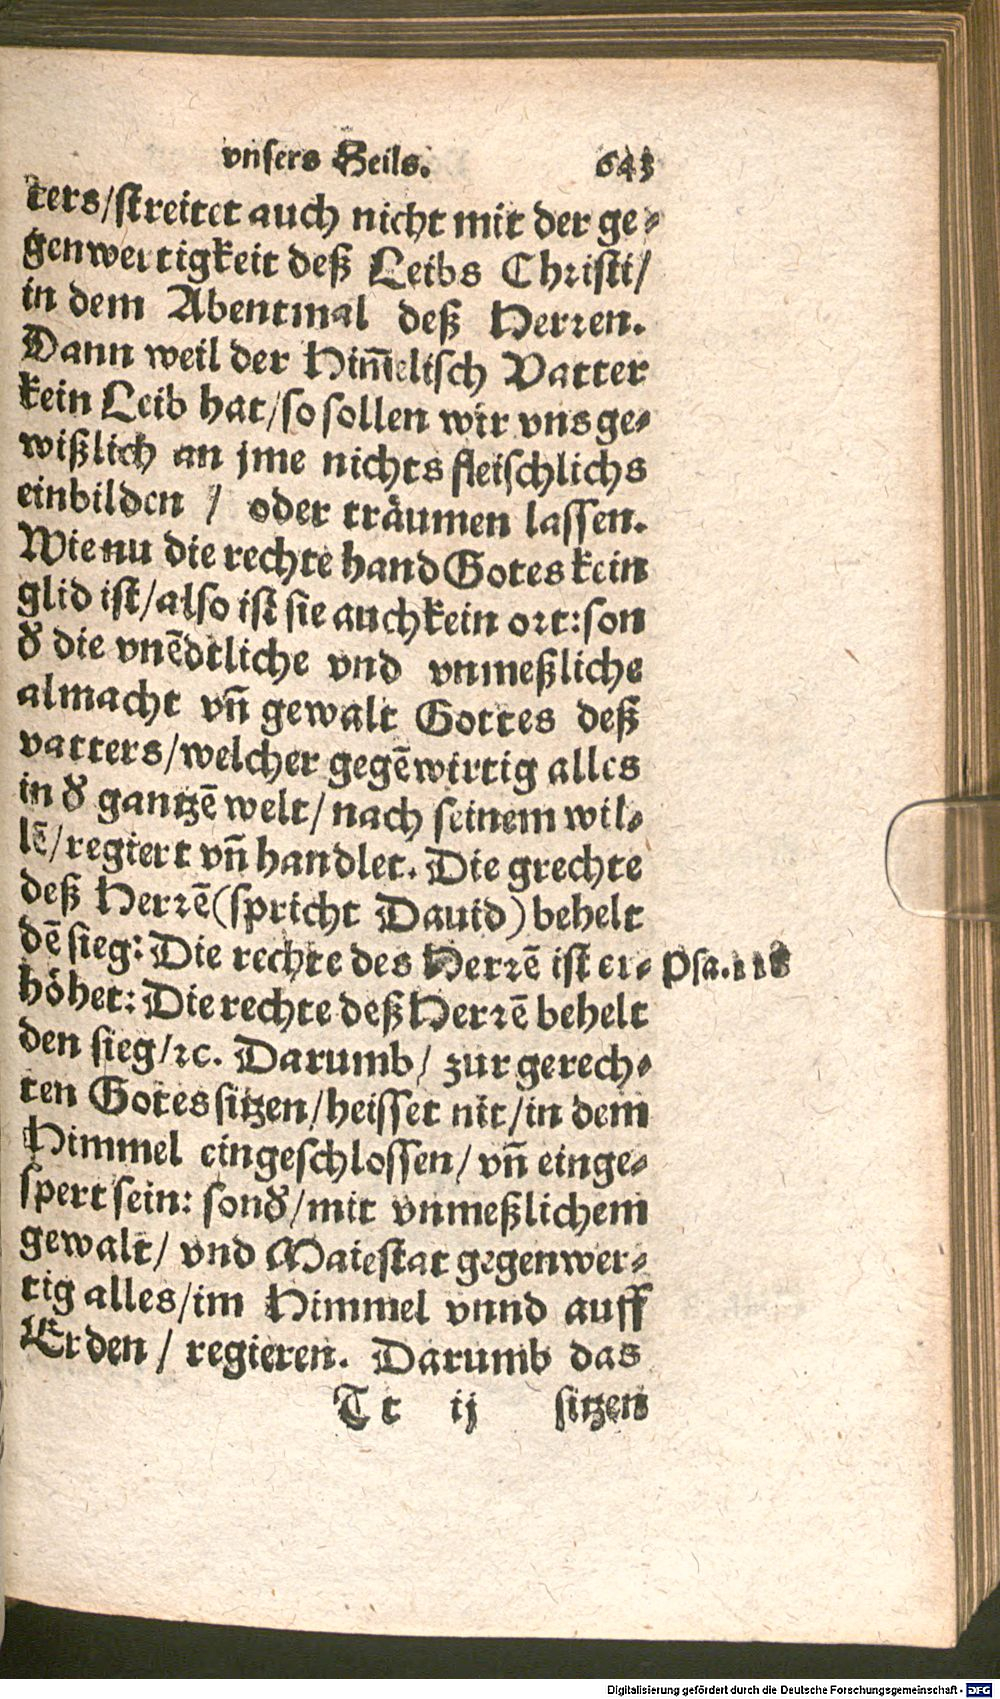 vnsers Heils. 643
ters/streitet auch nicht mit der ge⸗
genwertigkeit deß Leibs Christi/
in dem Abentmal deß Herꝛen.
Dann weil der Him̄elisch Vatter
kein Leib hat/so sollen wir vns ge⸗
wißlich an jme nichts fleischlichs
einbilden / oder träumen lassen.
Wie nu die rechte hand Gotes kein
glid ist/also ist sie auch kein oꝛt:son
d̕ die vnēdtliche vnd vnmeßliche
almacht vn̄ gewalt Gottes deß
vatters/welcher gegēwirtig alles
in d̕ gantzē welt/nach seinem wil⸗
lē/regiert vn̄ handlet. Die grechte
deß Herꝛē(spricht Dauid)behelt
dē sieg: Die rechte des Herꝛē ist er⸗ Psa.118
höhet: Die rechte deß Herꝛē behelt
den sieg/ꝛc. Darumb/ zur gerech⸗
ten Gotes sitzen/heisset nit/in dem
Himmel eingeschlossen/vn̄ einge⸗
spert sein: sond̕/mit vnmeßlichem
gewalt/ vnd Maiestat gegenwer⸗
tig alles/im Himmel vnnd auff
Erden / regieren. Darumb das
Tt ij sitzen
Digitalisierung gefördert durch die Deutsche Forschungsgemeinschaft - DFG